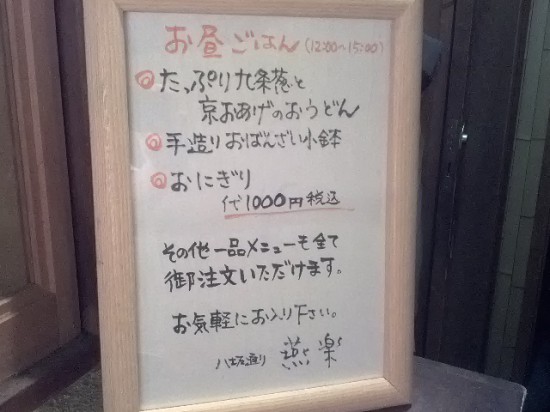 お昼ごはん(12:00~15:00)
◎たっぷり九条葱と
京おあげのおうどん
◎手造りおばんざい小鉢
◎おにぎり
代1000円税込
その他一品メニューも全て
御注文いただけます。
お気軽にお入り下さい。
八坂通り 燕楽